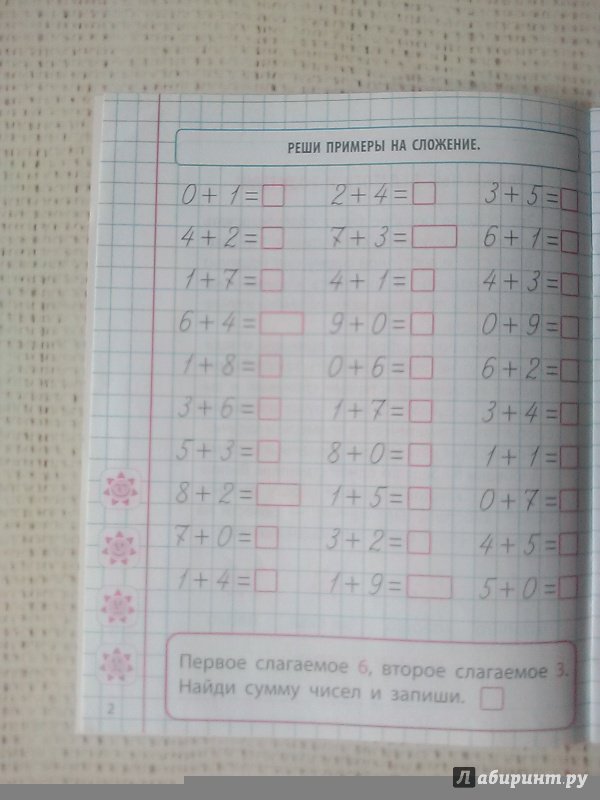 РЕШИ ПРИМЕРЫ НА СЛОЖЕНИЕ.
0+1= 2+4= 3+5=
4+2= 7+3= 6+1=
1+7= 4+1= 4+3=
6+4= 9+0= 0+9=
1+8= 0+6= 6+2=
3+6= 1+7= 3+4=
5+3= 8+0= 1+1=
8+2= 1+5= 0+7=
7+0= 3+2= 4+5=
1+4= 1+9= 5+0=
Первое слагаемое 6, второе слагаемое 3.
Найди сумму чисел и запиши.
2
Лабиринт.ру